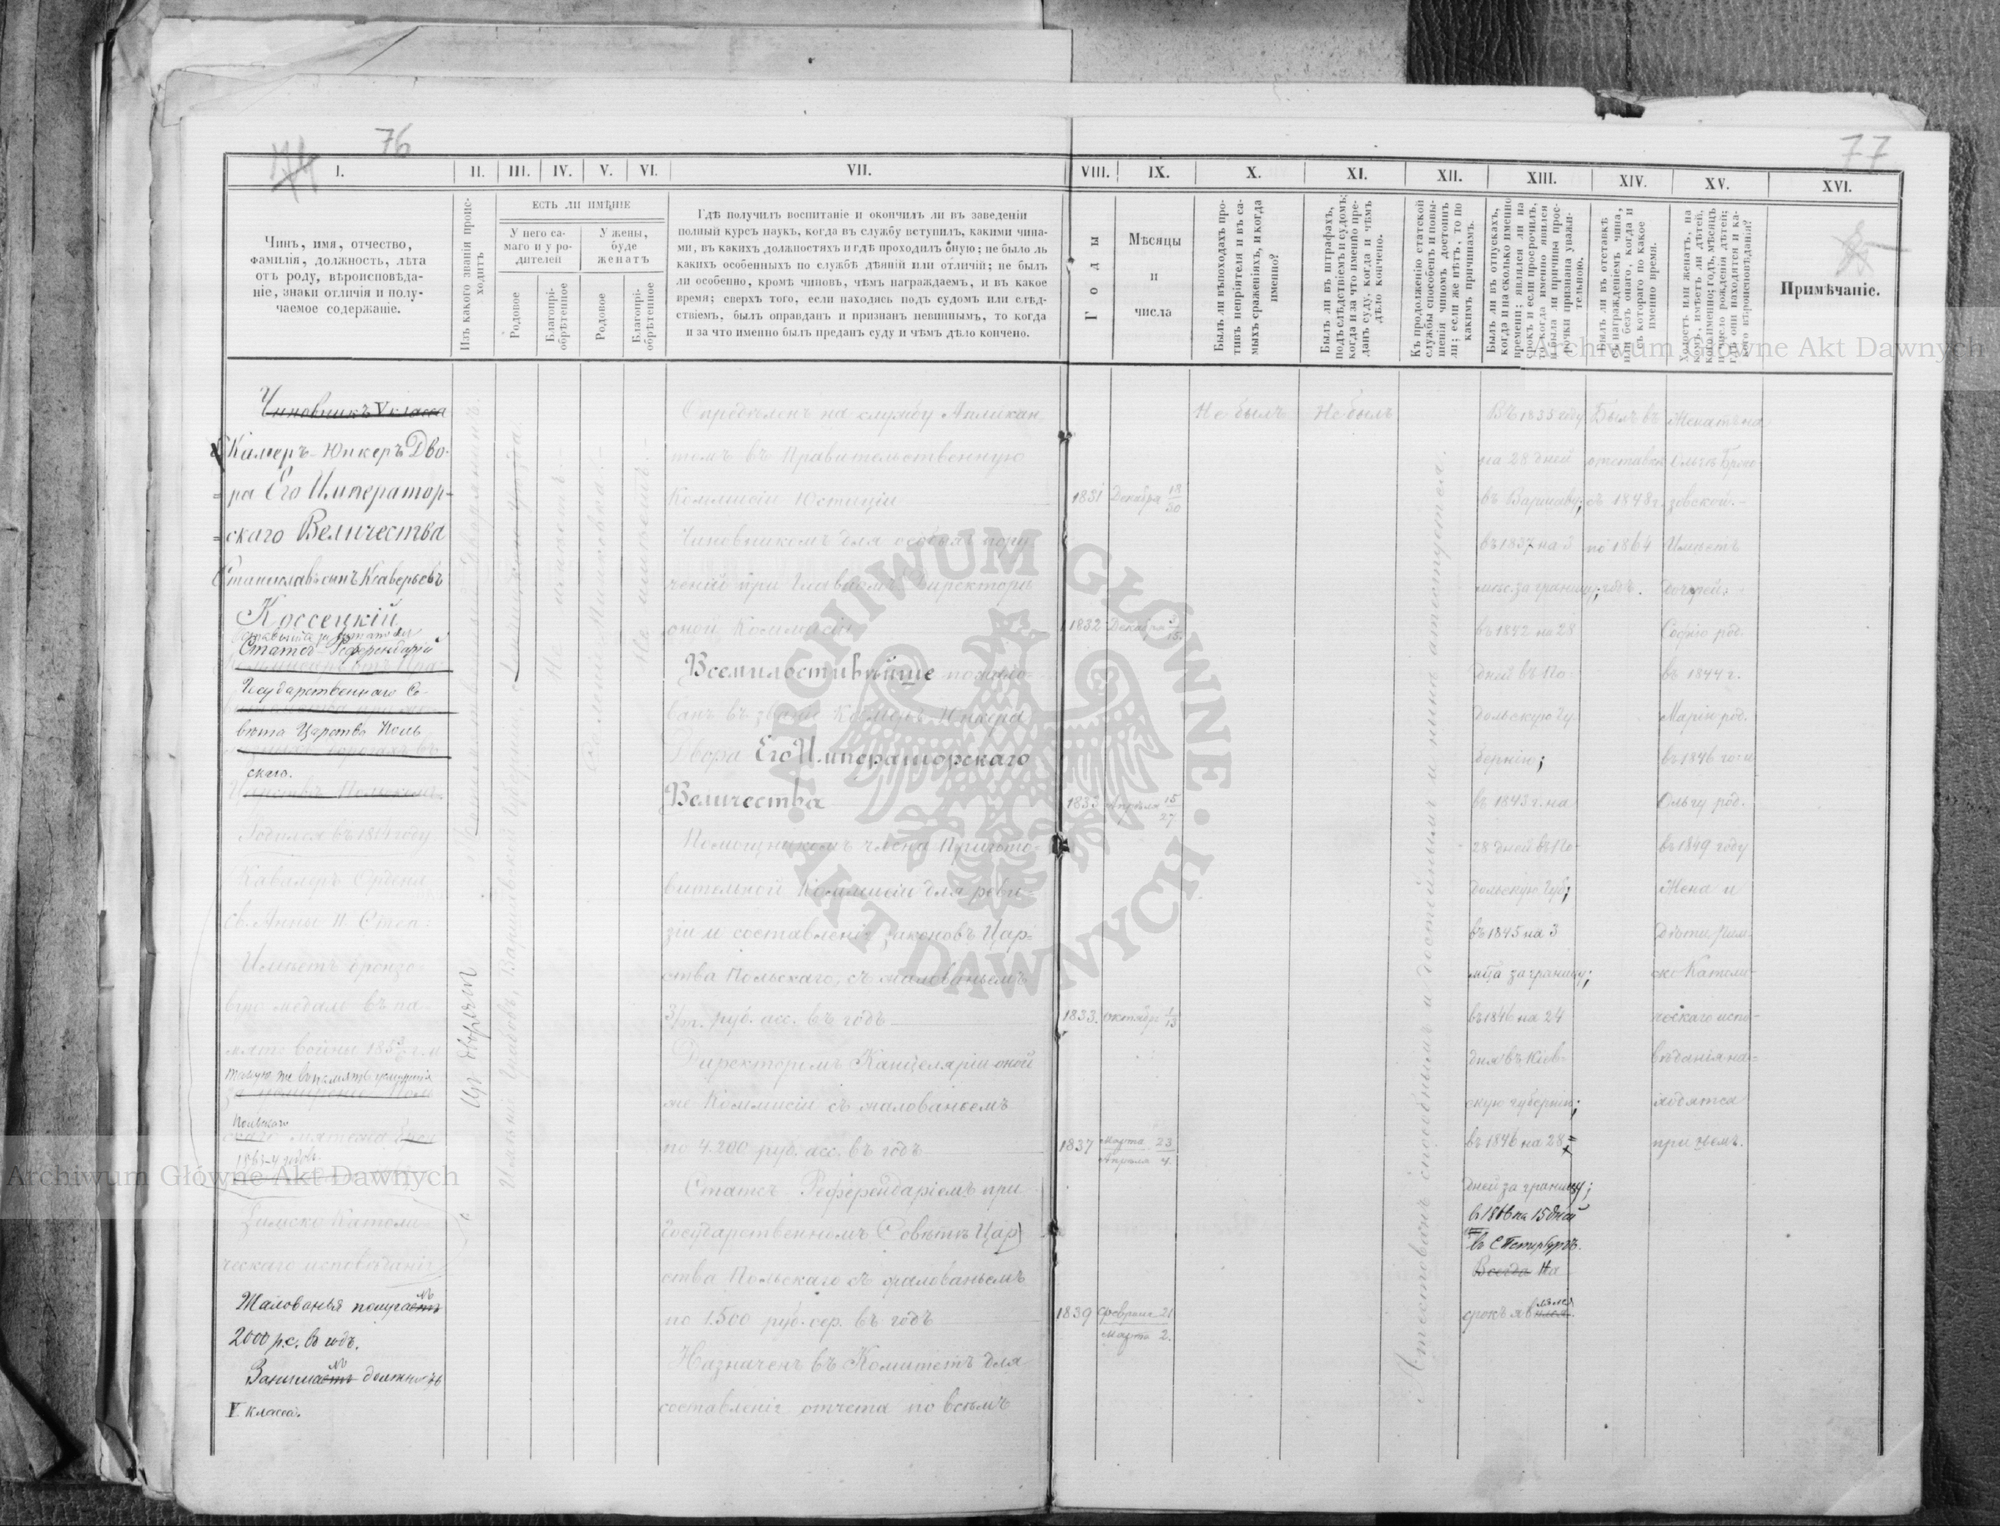 76
77
I.
II.
III.
IV.
V.
VI.
VII.
VIII.
IX.
X.
XI.
XII.
XIII.
XIV.
XV.
XVI.
Чинъ, имя, отчество,
фамилія, должность, лѣта
отъ роду, вѣроисповѣда-
ніе, знаки отличія и полу-
чаемое содержаніе.
Изъ какого званія проис-
ходитъ
ЕСТЬ ЛИ ИМѢНІЕ
У него са-
маго и у ро-
дителей
У жены,
буде
женатъ
Родовое
Благопрі-
обрѣтенное
Родовое
Благопрі-
обрѣтенное
Гдѣ получилъ воспитаніе и окончилъ ли въ заведеніи
полный курсъ наукъ, когда въ службу вступилъ, какими чина-
ми, въ какихъ должностяхъ и гдѣ проходилъ оную; не было ль
какихъ особенныхъ по службѣ дѣяній или отличій; не былъ
ли особенно, кромѣ чиновъ, чѣмъ награждаемъ, и въ какое
время; сверхъ того, если находясь подъ судомъ или слѣд-
ствіемъ, былъ оправданъ и признанъ невиннымъ, то когда
и за что именно былъ преданъ суду и чѣмъ дѣло кончено.
Годы
Мѣсяцы
и
числа
Былъ ли въ походахъ про-
тивъ непріятеля и въ са-
мыхъ сраженіяхъ, и когда
именно?
Былъ ли въ штрафахъ,
подъ слѣдствіемъ и судомъ;
когда и за что именно пре-
данъ суду, когда и чѣмъ
дѣло кончено.
Къ продолженію статской
службы способенъ и повы-
шенія чиномъ достоинъ
ли; если же нѣтъ, то по
какимъ причинамъ.
Былъ ли въ отпускахъ,
когда и на сколько именно
времени; явился ли на
срокъ и если просрочилъ,
то когда именно явился
и была ли причина прос-
рочки признана уважи-
тельною.
Былъ ли въ отставкѣ
съ награжденіемъ чина,
или безъ онаго, когда и
съ котораго по какое
именно время.
Холостъ или женатъ, на
комъ, имѣетъ ли дѣтей,
кого именно; годъ, мѣсяцъ
и число рожденія дѣтей;
гдѣ они находятся и ка-
кого вѣроисповѣданія?
Примѣчаніе.
Чиновникъ V класса
Камеръ-Юнкеръ Дво-
ра Его Император-
скаго Величества
Станиславъ сынъ Ксаверьевъ
Коссецкій
Статсъ-Референдарій
Государственнаго Со-
вѣта Царства Поль
скаго.
Царства Польскаго
Родился въ 1814 году
Кавалеръ Ордена
Св. Анны II Степ.
Имѣетъ бронзо-
вую медаль въ па-
мять войны 1853/6 г. и
такую же въ память усмиренія
Польскаго
1863-4 годовъ.
Римско Католи-
ческаго исповѣданія
Жалованья получаетъ
2000 р.с. въ годъ.
Занимаетъ должность
V класса.
Изъ дворянъ
Не имѣетъ
Не имѣетъ.
Опредѣленъ на службу Апликан
томъ въ Правительственную
Коммисію Юстиціи
1831 Декабря 18/30
Чиновникомъ для особыхъ пору
ченій при Главномъ Директорѣ
оной Коммисіи
1832 Декабря 3/15
Всемилостивѣйше пожало
ванъ въ званіе Камеръ Юнкера
Двора Его Императорскаго
Величества
1833 Апрѣля 15/27
Помощникомъ члена Пригото
вительной Коммисіи для реви-
зіи и составленія законовъ Цар-
ства Польскаго, съ жалованьемъ
3/т. руб. асс. въ годъ
1833. Октября 1/13
Директоромъ Канцеляріи оной
же Коммисіи съ жалованьемъ
по 4.200 руб. асс. въ годъ
1837 Марта 23/Апрѣля 4.
Статсъ Референдаріемъ при
Государственномъ Совѣтѣ Цар
ства Польскаго съ жалованьемъ
по 1.500 руб. сер. въ годъ
1839 Февраля 21/Марта 2.
Назначенъ въ Комитетъ для
составленія отчета по всѣмъ
Не былъ
Не былъ
Аттестованъ способнымъ и достойнымъ и нынѣ аттестуется.
Въ 1835 году
на 28 дней
въ Варшаву;
въ 1837 на 3
мѣс. за границу;
въ 1842 на 28
дней въ По-
дольскую Гу-
бернію;
въ 1843 г. на
28 дней въ По
дольскую Губ;
въ 1845 на 3
мѣца за границу;
въ 1846 на 24
дня въ Кіев-
скую губернію;
въ 1846 на 28
дней за границу;
въ 1866 на 15 дней
въ С Петербургъ.
Всегда На
срокъ яв
Былъ въ
отставкѣ
съ 1848 г.
по 1864
годъ.
Женатъ на
Ольгѣ Брзо-
зовской.
Имѣетъ
дочерей:
Софію род.
въ 1844 г.
Марію род.
въ 1846 го: и
Ольгу род.
въ 1849 году
Жена и
дѣти Рим-
ско Католи-
ческаго испо-
вѣданія на-
ходятся
при немъ.
ARCHIWUM GŁÓWNE
AKT DAWNYCH
Archiwum Główne Akt Dawnych
Archiwum Główne Akt Dawnych